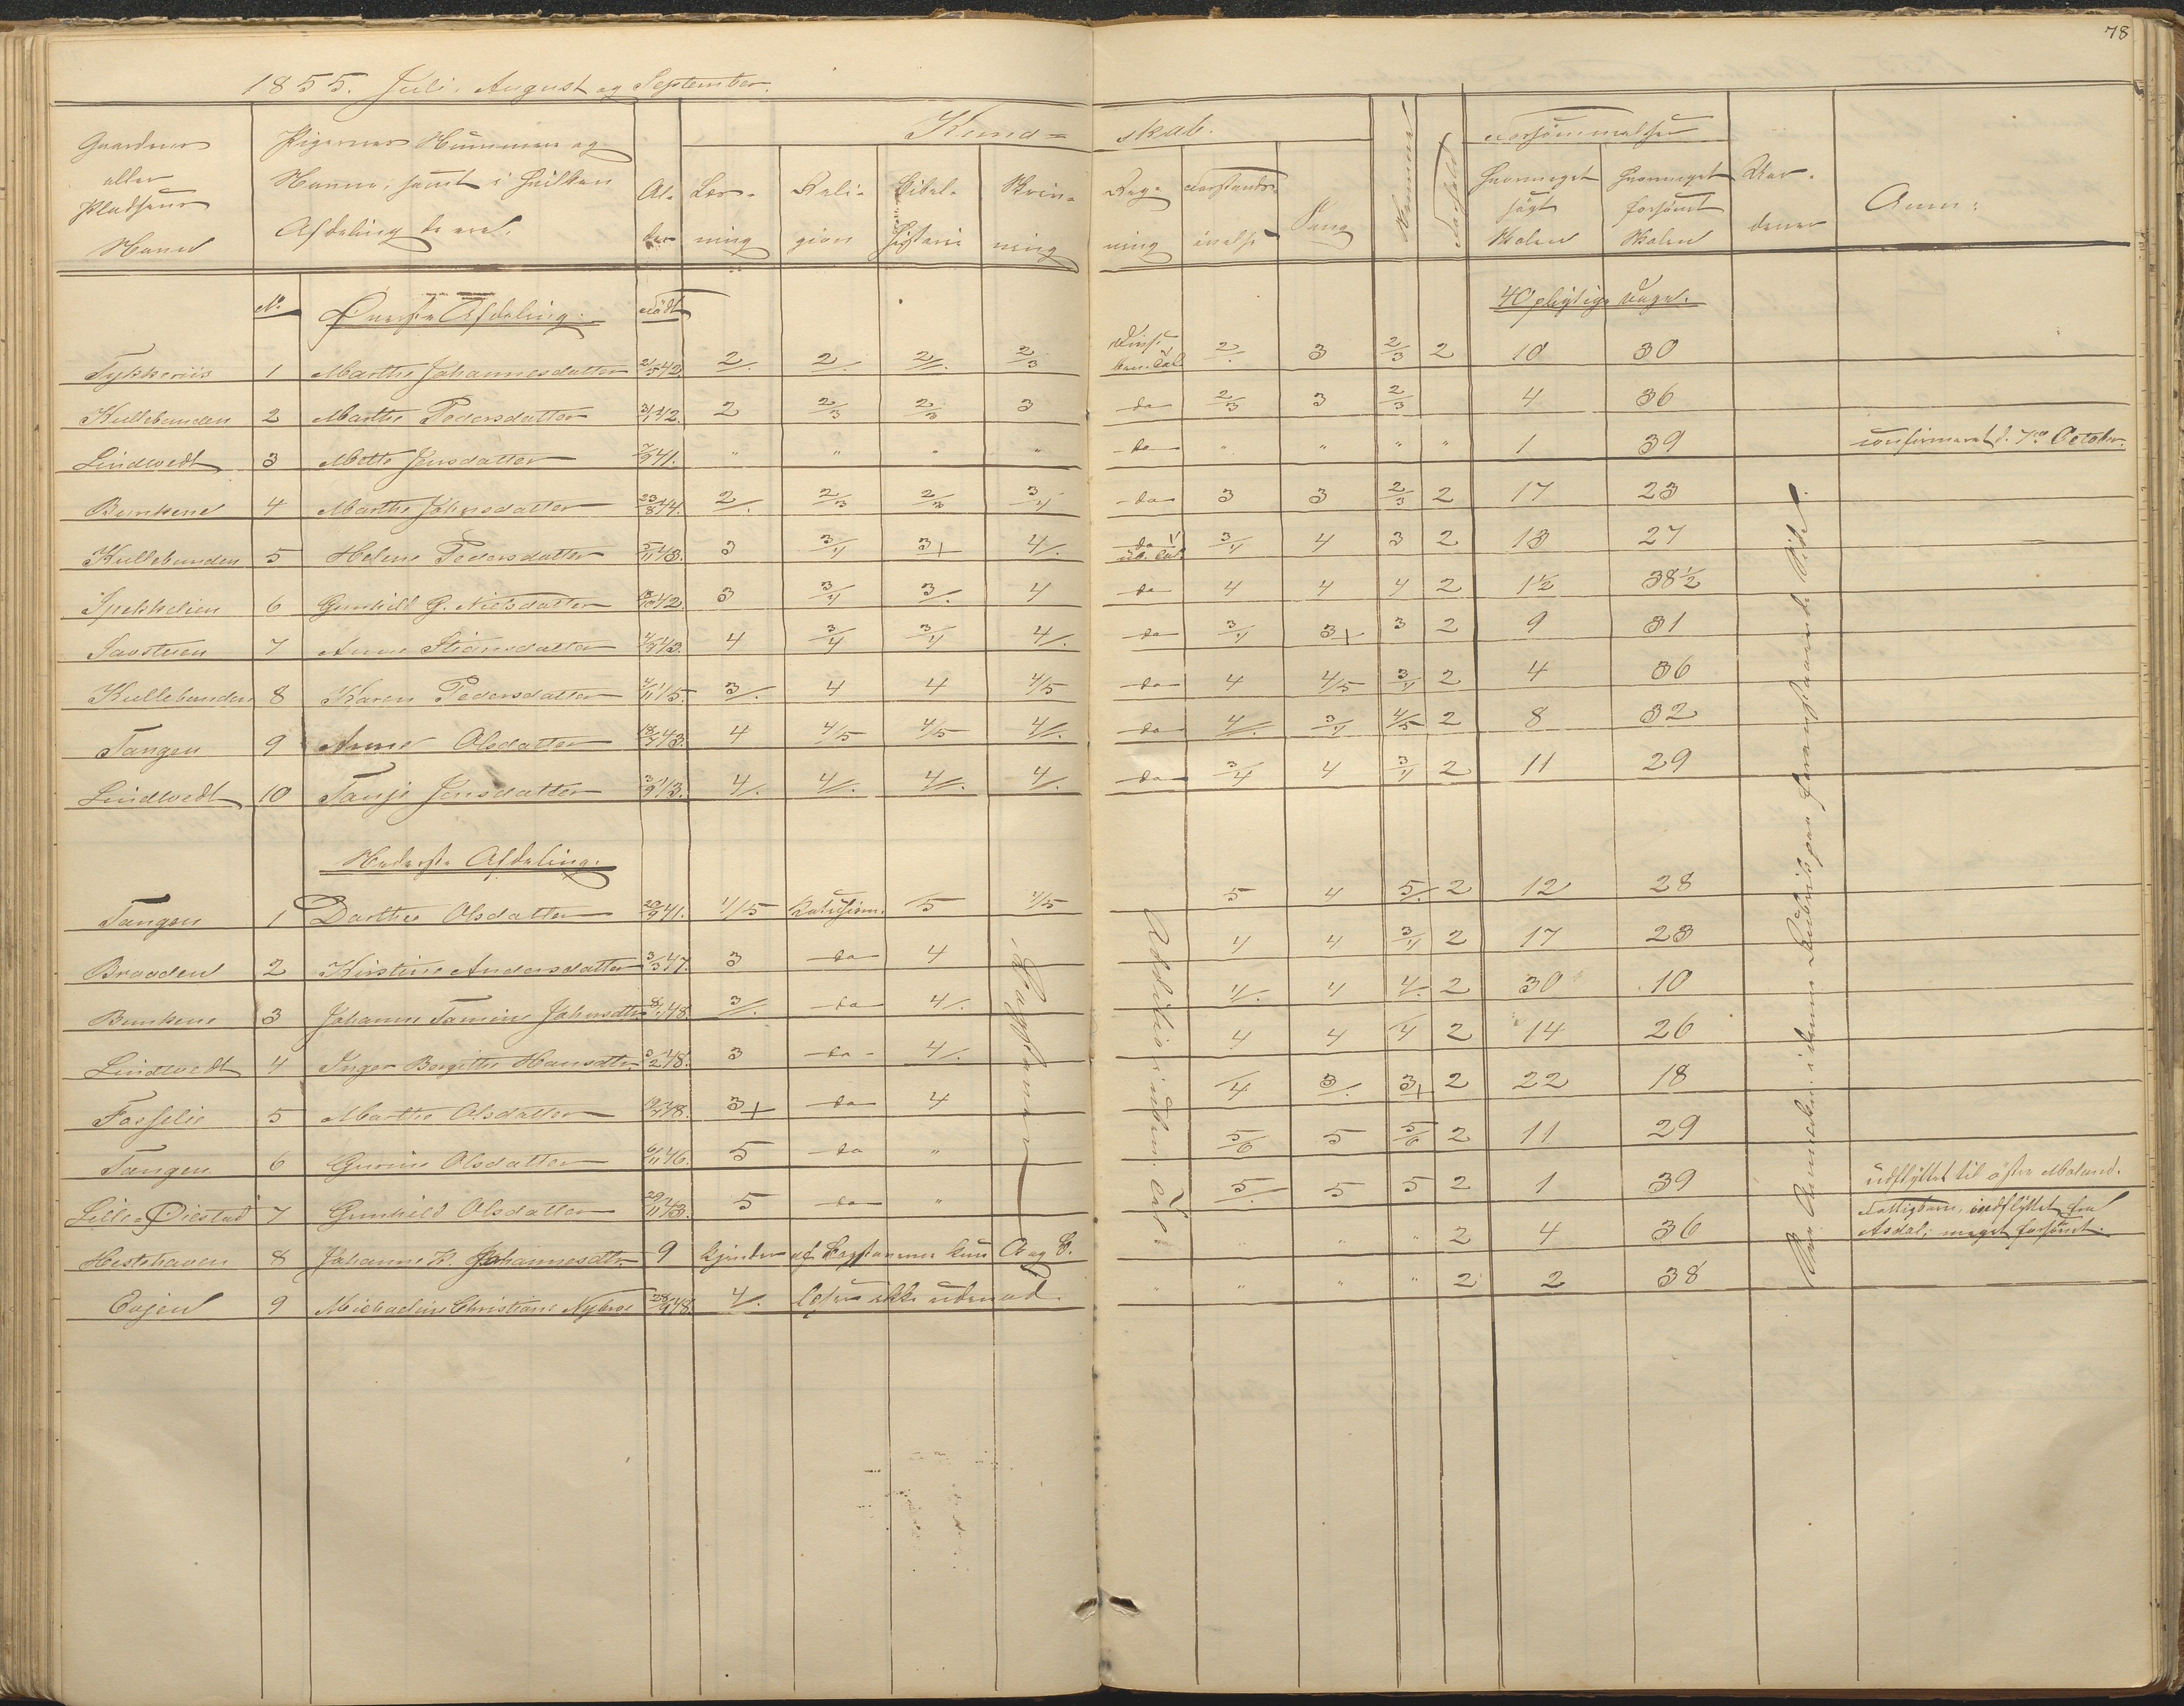 78
1855. Juli, August og September.
Gaardens eller Pladsens Navn | Pigernes Nummer og Navne, samt i hvilken Afdeling de ere. | Alder | Kundskab. | Nemme | Forhold | Forsømmelser | Anm:
Læsning | Religion | Bibelhistorie | Skrivning | Regning | Forstandsøvelse | Sang | Hvormeget søgt Skolen | Hvormeget forsømt Skolen
No. Øverste Afdeling. Født 40 pligtige Dage.
Tykkeriis 1 Marthe Johannesdatter 42. 2/. 2/. 2//. 2/3 2/. 3 2/3 2 10 30
Kullebunden 2 Marthe Pedersdatter 42. 2 2/3 2/3 3 do 2/3 3 2/3 4 36
Lindtvedt 3 Mette Jensdatter 41. " " " " do " " " " 1 39 confirmeret d. 7de October.
Bunkene 4 Marthe Johnsdatter 23/8 44. 2/. 2/3 2/3 3/4 do 3 3 2/3 2 17 23
Kullebunden 5 Helene Pedersdatter 5/11 43. 3 3/4 3+ 4/. do 3/4 4 3 2 13 27
Spekkelien 6 Gunhild G. Nielsdatter 42. 3 3/4 3/. 4 do 4 4 4 2 1½ 38½
Savstuen 7 Anne Stiansdatter 4 3/4 3/4 4/. do 3/4 3+ 3 2 9 31
Kullebunden 8 Karen Pedersdatter 45. 3/. 4 4 4/5 do 4 4/5 3/4 2 4 36
Tangen 9 Anne Olsdatter 43. 4 4/5 4/5 4//. do 4//. 3/4 4/5 2 8 32
Lindtvedt 10 Tanje Jensdatter 43. 4/. 4//. 4//. 4/. do 3/4 4 3/4 2 11 29
Nederste Afdeling.
Tangen 1 Dorthe Olsdatter 20/9 41. 4/5 Katechism. 5 4/5 5 4 5/. 2 12 28
Braaden 2 Kirstine Andersdatter 3/3 47. 3 do 4 4 4 3/4 2 17 23
Bunkene 3 Johanne Tomine Johnsdtr 48. 3//. do 4/. 4/. 4 4/. 2 30 10
Lindtvedt 4 Inger Bergitte Hansdtr 3/2 48. 3 do 4/. 4 4 4 2 14 26
Fosselie 5 Marthe Olsdatter 48. 3+ do 4 4 3/. 3+ 2 22 18
Tangen 6 Gurine Olsdatter 6/11 46. 5 do " 5/6 5 5/6 2 11 29
Lille-Øiestad 7 Gunhild Olsdatter 29/11 43. 5 do " 5/. 5 5 2 1 39 udflyttet til østre Moland.
Hestehaven 8 Johanne K. Johannesdtr. 9 kjender af Bogstaverne kun A og B. " " " 2 4 36 Fattigbarn, indflyttet fra Asdal; meget forsømt.
Eujen 9 Michaeline Christiane Nybroe 48. 4/. læser ikke udenad. " " " " 2 2 38
Bogstaver
Addition i uben. Tal.